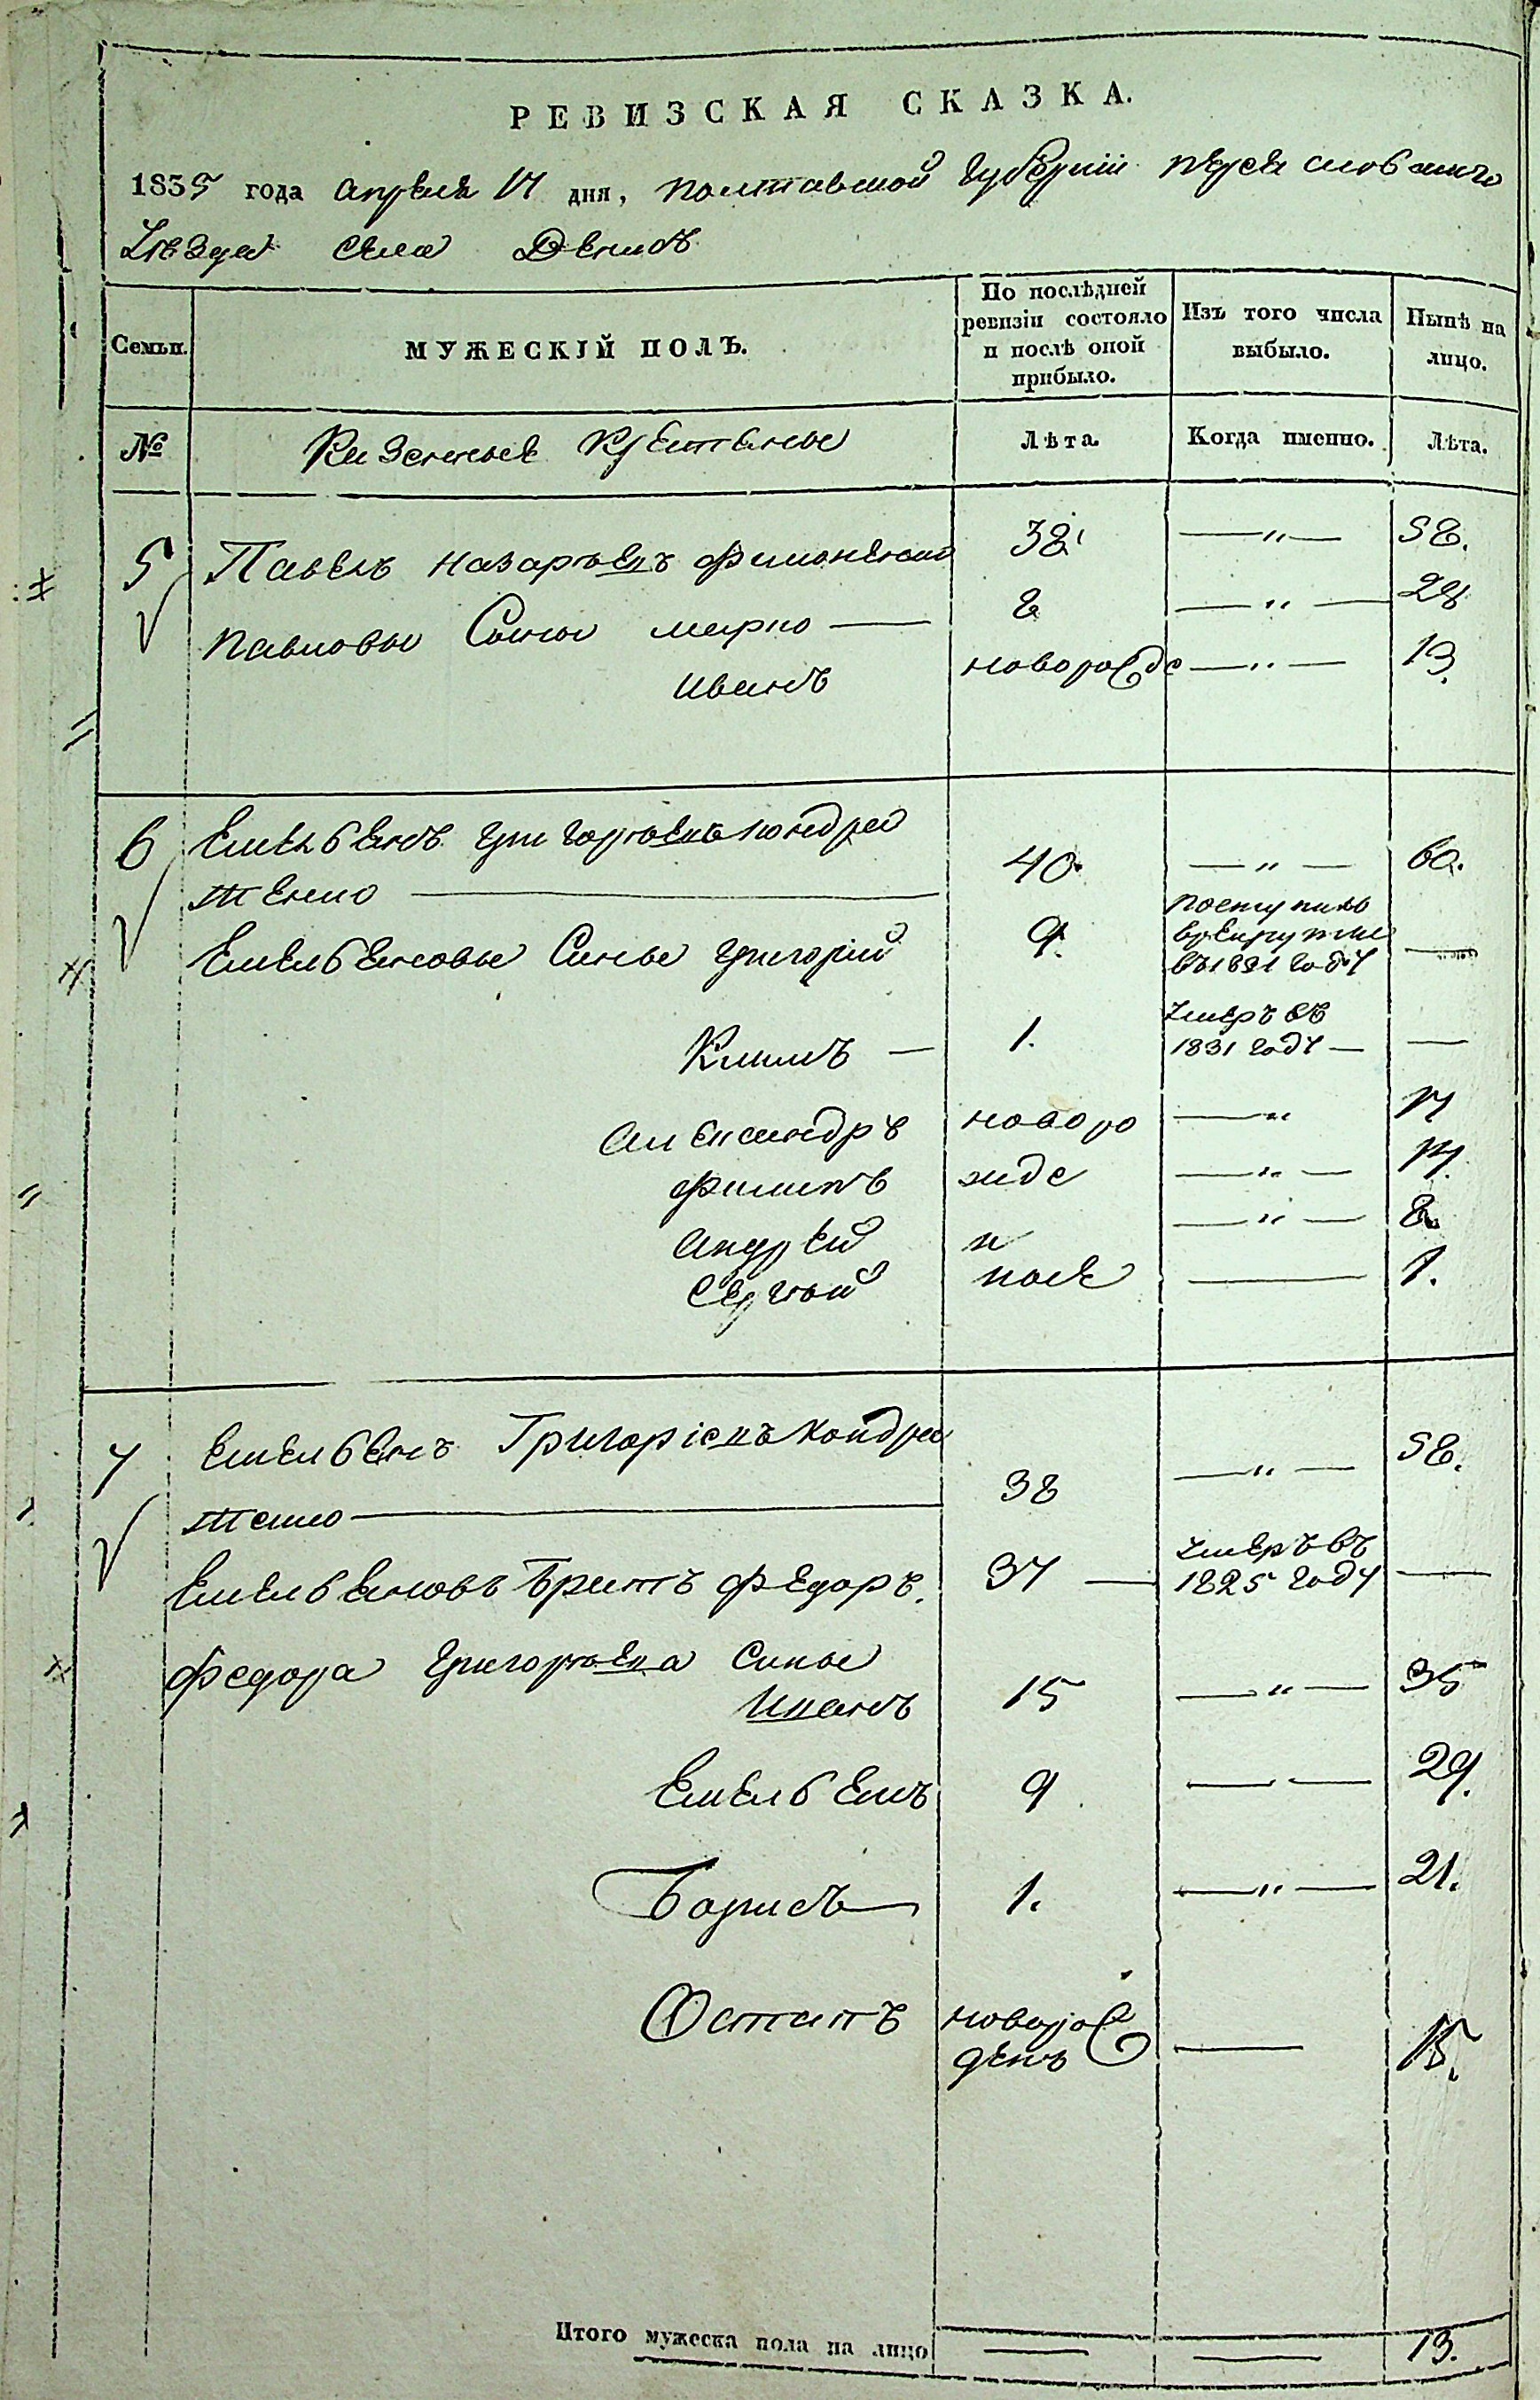 РЕВИЗСКАЯ СКАЗКА.
1835 года апреля 17 дня, Полтавской губерніи переясловского
уезда села Денисъ
Семьи.
МУЖЕСКІЙ ПОЛЪ.
По послѣдней ревизіи состояло и послѣ оной прибыло.
Изъ того числа выбыло.
Нынѣ на лицо.
№ Казенные крестьяне Лѣта. Когда именно. Лѣта.
5 Павелъ Назарьевъ 38 —"— 58.
Павловы Сыны Марко — 8 —"— 28
Иванъ новорожде —"— 13.
6 Емельянъ Григорьевъ Кондра
тенко — 40. —"— 60.
Емельяновы Сины Григорій 9. поступилъ в рекруты въ 1831 году —
Климъ — 1. умеръ въ 1831 году — —
Александръ новоро —" 17
Филипъ жде —"— 14.
Андрей н —"— 8.
Сергѣй ные — 1.
7 Емельянъ Григоріевъ Кондра
тенко — 38 —"— 58.
Емельяновъ Братъ Федоръ. 37 — умеръ въ 1825 году —
Федора Григорьева Сины
Иванъ 15 —"— 35
Емельянъ 9 — — 29.
Борисъ 1. —"— 21.
Остапъ новорож
денъ — 15.
Итого мужеска пола на лицо — — 13.